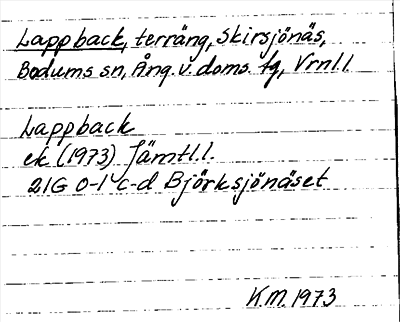 Lappback, terräng, Skirsjönäs,
Bodums sn, Ång. v. doms. tg, Vrnl.l.
Lappback
ek (1973) Jämtl.l.
21G 0-1 c-d Björksjönäset
K.M. 1973